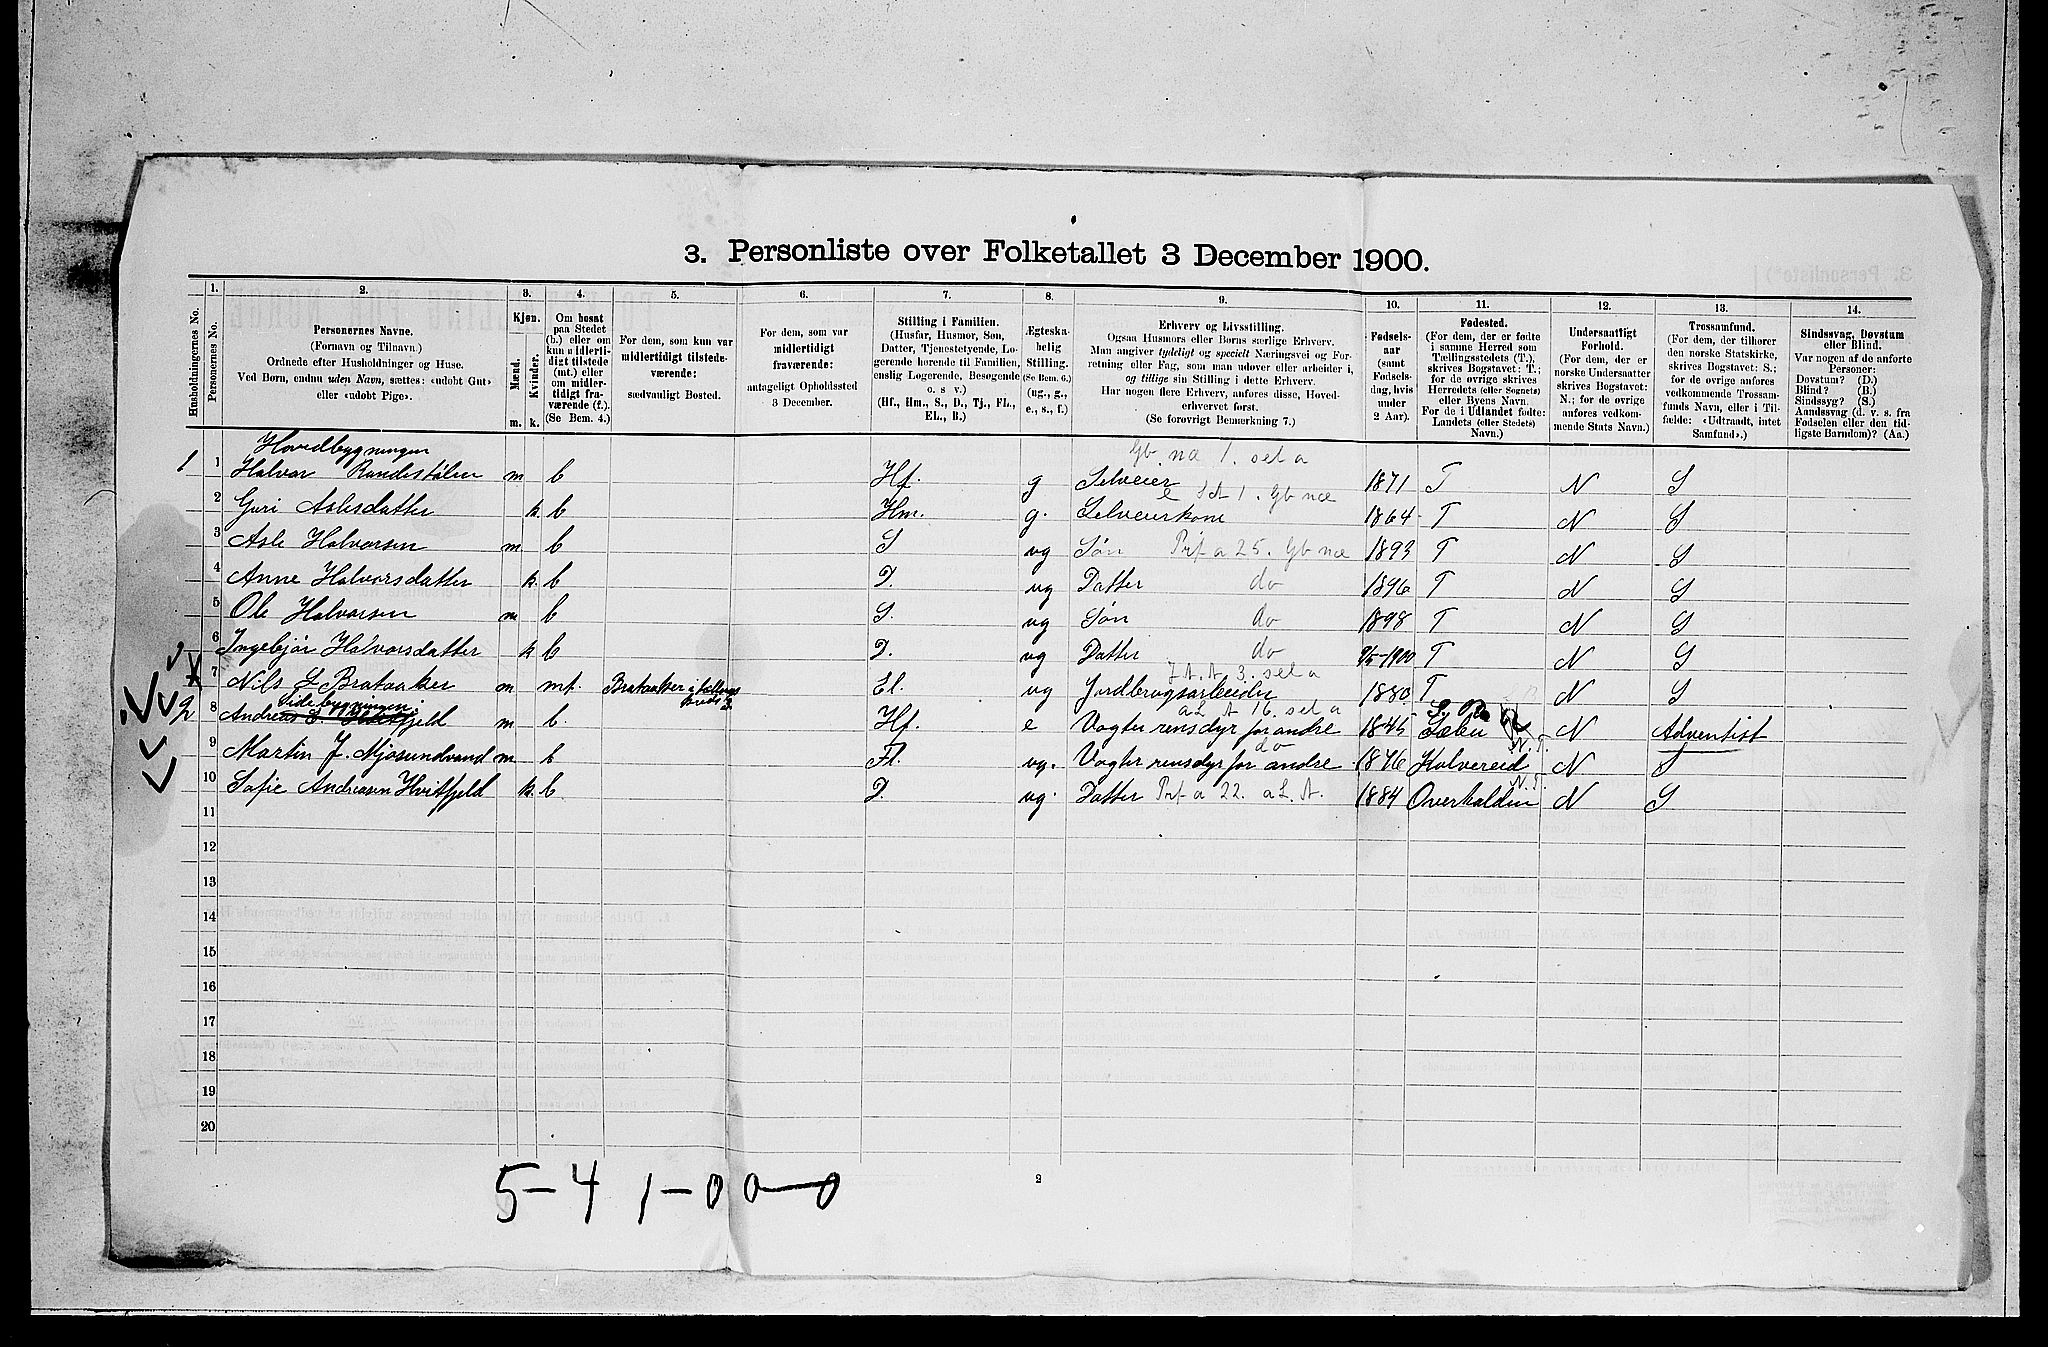 3. Personliste over Folketallet 3 December 1900.
1. 2. 3. 4. 5. 6. 7. 8. 9. 10. 11. 12. 13. 14.
Husholdningernes No.
Personernes No.
Personernes Navne.
(Fornavn og Tilnavn.)
Ordnede efter Husholdninger og Huse.
Ved Børn, endnu uden Navn, sættes: «udobt Gut»
eller «udobt Pige».
Kjøn.
Mænd.
Kvinder.
m. k.
Om bosat
paa Stedet
(b.) eller om
kun midlerti-
digt tilstede
(mt.) eller
om midler-
tidigt fra-
værende (f.).
(Se Bem. 4.)
For dem, som kun var
midlertidigt tilstede-
værende:
sædvanligt Bosted.
For dem, som var
midlertidigt
fraværende:
antageligt Opholdssted
3 December.
Stilling i Familien.
(Husfar, Husmor, Søn,
Datter, Tjenestetyende, Lo-
gerende hørende til Familien,
enslig Logerende, Besøgende
o. s v.)
(Hf., Hm., S., D., Tj., Fl.,
El., B.)
Ægteska-
belig
Stilling.
(Se Bem. 6.)
(ug., g.,
e., s., f.)
Erhverv og Livsstilling.
Ogsaa Husmors eller Børns særlige Erhverv.
Man angiver tydeligt og specielt Næringsvei og For-
retning eller Fag, som man udøver eller arbeider i,
og tillige sin Stilling i dette Erhverv.
Har nogen flere Erhverv, anføres disse, Hoved-
erhvervet først.
(Se forøvrigt Bemerkning 7.)
Fødsels-
aar
(samt
Fødsels-
dag, hvis
under
2 Aar).
Fødested.
(For dem, der er fødte
i samme Herred som
Tællingsstedets (T.),
skrives Bogstavet: T.;
for de øvrige skrives
Herredets (eller Sognets)
eller Byens Navn.
For de i Udlandet fødte:
Landets (eller Stedets)
Navn.)
Undersaatligt
Forhold.
(For dem, der er
norske Undersaatter
skrives Bogstavet:
N.; for de øvrige
anføres vedkom-
mende Stats Navn.)
Trossamfund.
(For dem, der tilhører
den norske Statskirke,
skrives Bogstavet: S.;
for de øvrige anføres
vedkommende Trossam-
funds Navn, eller i Til-
fælde: «Udtraadt, intet
Samfund».)
Sindssvag, Døvstum
eller Blind.
Var nogen af de anførte
Personer:
Døvstum? (D.)
Blind? (B.)
Sindssyg? (S.)
Aandssvag (d. v. s. fra
Fødselen eller den tid-
ligste Barndom)? (Aa.)
Hovedbygningen Gb næ 1. sel a
1 1 Halvor Randestølen m b Hf. g Selveier 1871 T N S
e Sel 1. Gb næ
2 Guri Aslesdatter k. b Hm. g. Selveierkone 1864 T N S
3 Asle Halvorsen m b S ug Søn Prf a 25. Gb næ 1893 T N S
4 Anne Halvorsdatter k. b D. ug Datter do 1896 T N S
5 Ole Halvorsen m b S. ug Søn do 1898 T N S
6 Ingebjør Halvorsdatter k b D. ug Datter do 9/5-1900 T N S
J A. A 3. sel a
7 Nils L Brataaker m mt. Brataaker El. ug Jordbrugsarbeider 1880 T N S
Sidebygningen: a L A 16. sel a
2 8 Andreas L Hvitfjeld m b. Hf. e Vogter rensdyr for andre 1845 N Adventist
do N. T.
9 Martin J. Mjosundvand m b Fl. ug. Vogter rensdyr for andre 1876 Kolvereid N S
N. T.
10 Sofie Andreasen Hvitfjeld k. b D. ug. Datter Prf a 22. a L. A. 1884 Overhalden N S
11
12
13
14
15
16
17
18
19
20
5-4 1-0 0-0
2